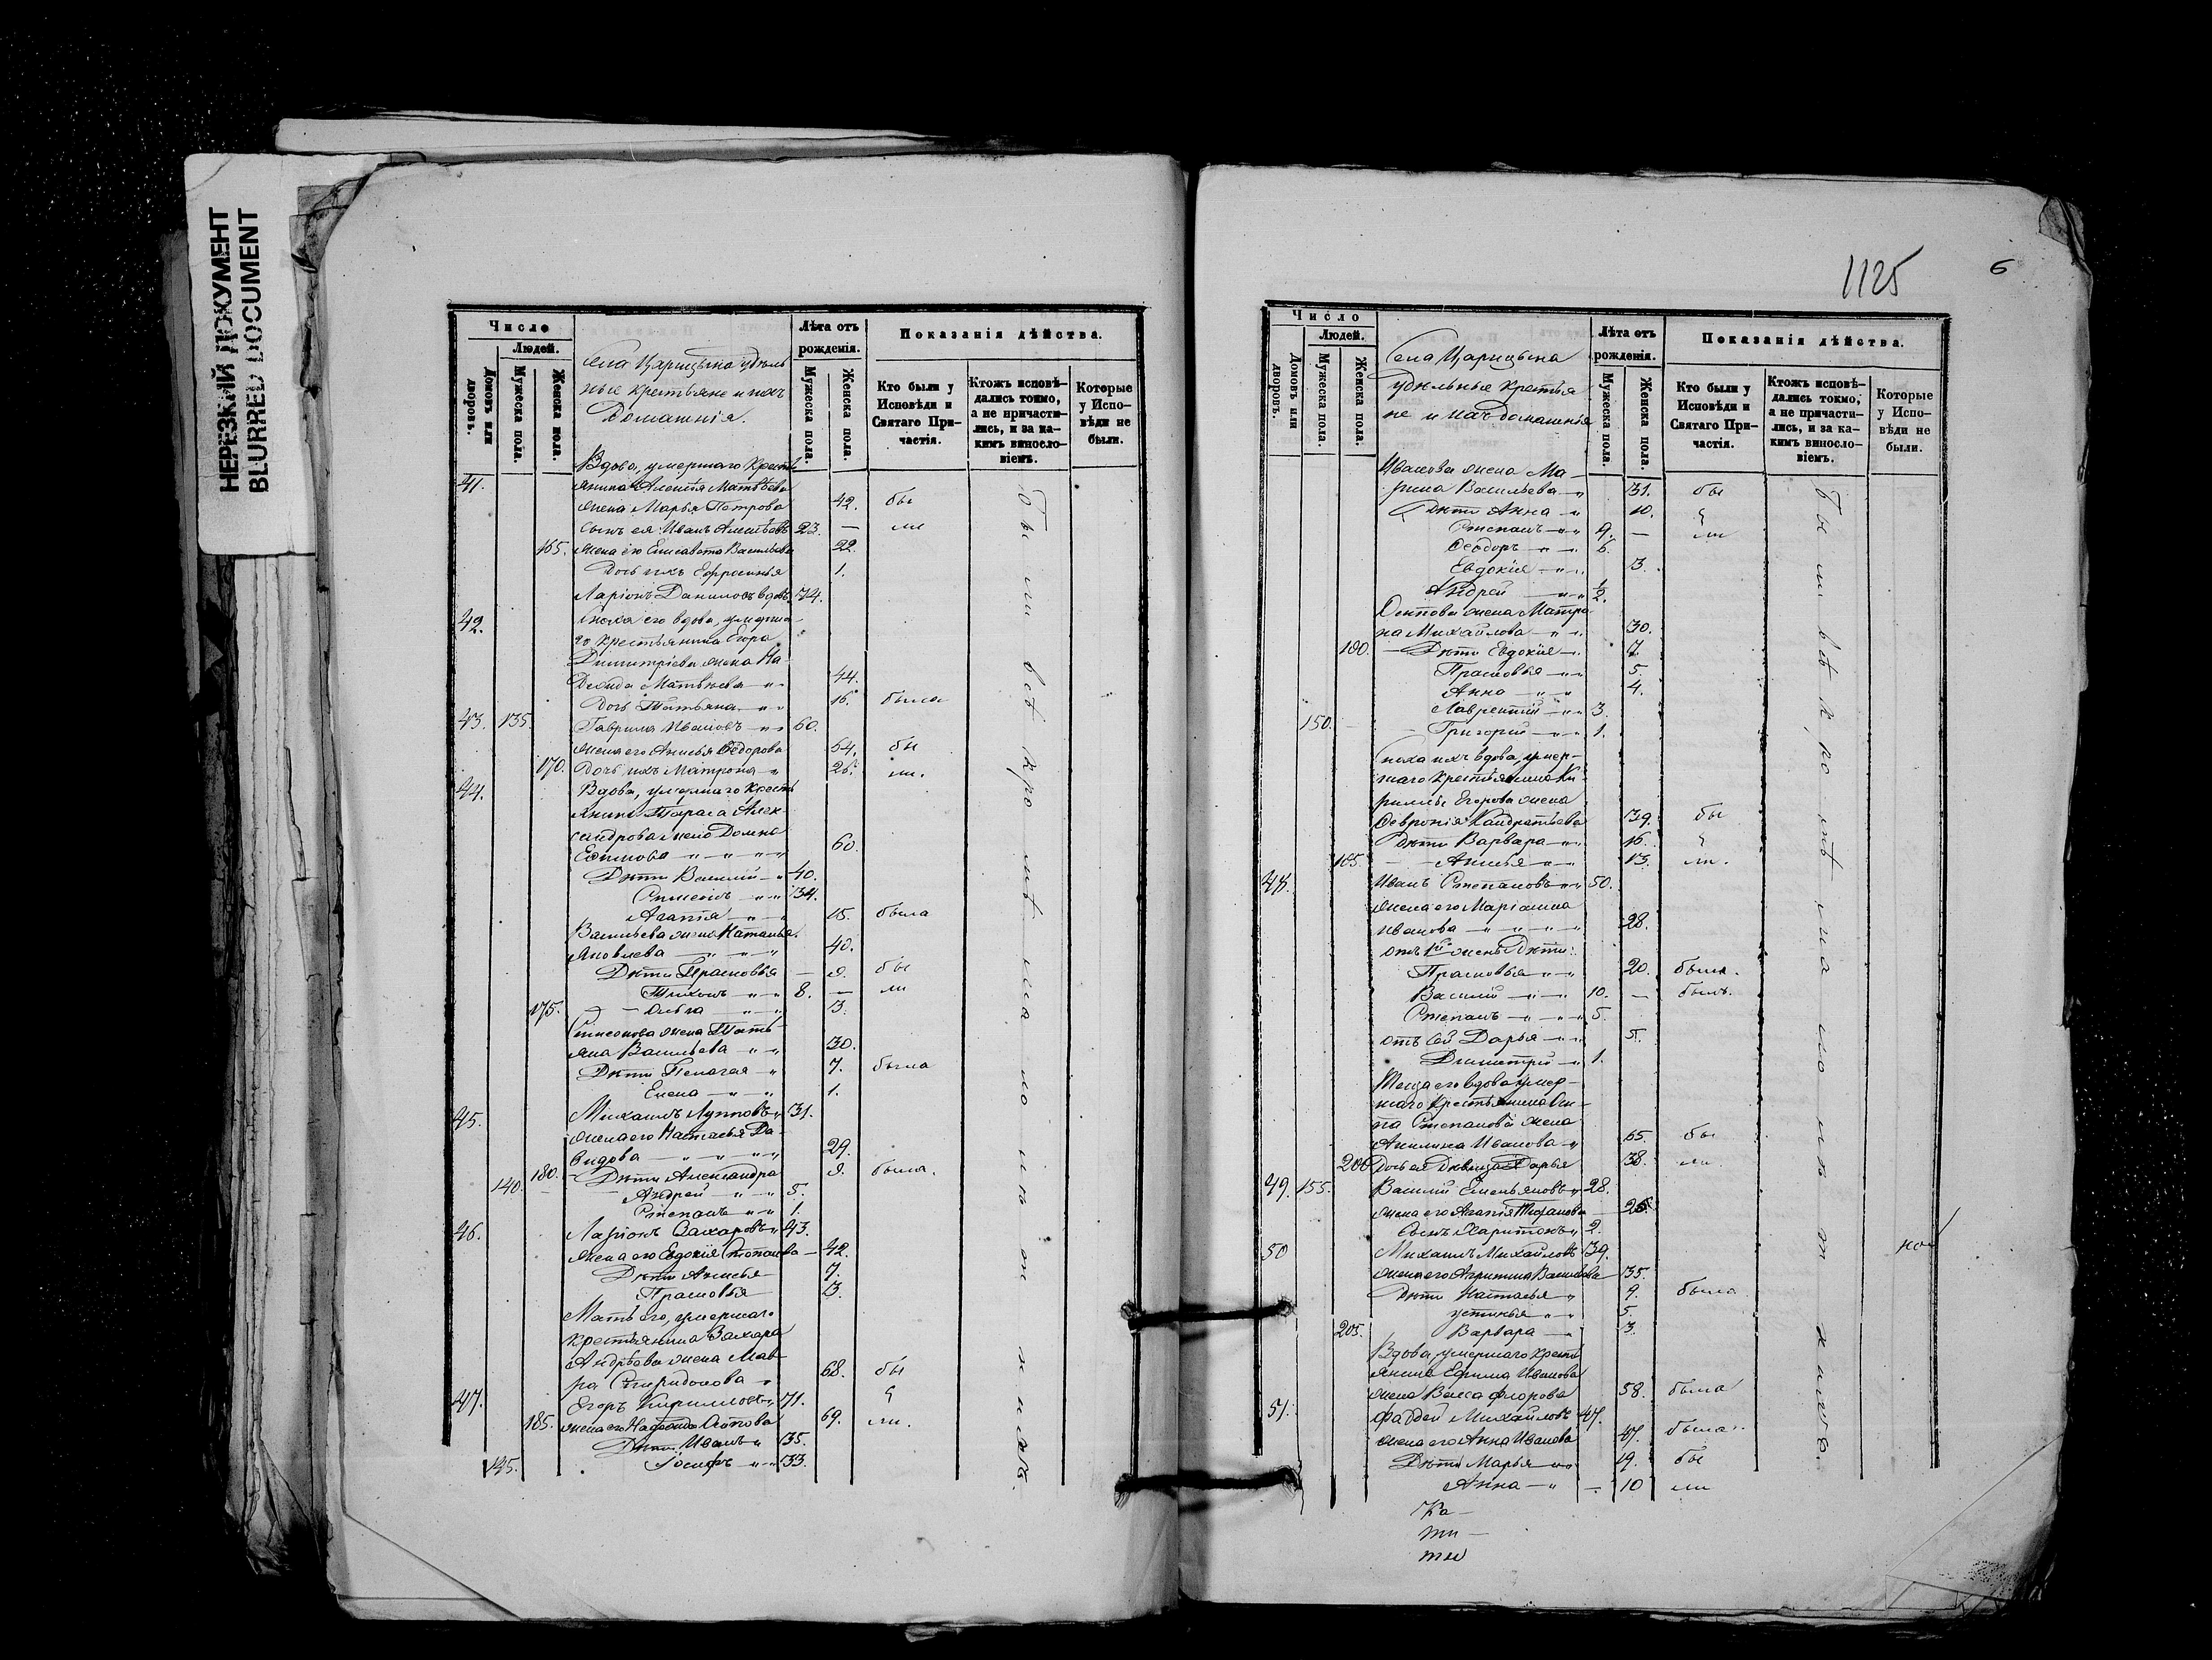 НЕРЕЗКИЙ ДОКУМЕНТ
BLURRED DOCUMENT
Число
Людей.
Домовъ или дворовъ.
Мужеска пола.
Женска пола.
Села Царицына удѣль
ные крестьяне и ихъ
Домашнія.
Лѣта отъ рожденія.
Мужеска пола.
Женска пола.
Показанія дѣйства.
Кто были у Исповѣди и Святаго Причастія.
Ктожъ исповѣдались токмо, а не причастились, и за какимъ винословіемъ.
Которые у Исповѣди не были.
Вдова, умершаго кресть
41. янина Алексѣя Матвѣева
жена Марья Петрова 42. бы
сынъ ея Иванъ Алексѣевъ 23. — ли
165. жена его Елисавета Васильева 22.
Дочь ихъ Ефросинья 1.
Ларіонъ Даниловъ вдовъ 74.
42. Сноха его вдова, умерша
го крестьянина Егора
Димитріева жена На-
дежда Матвѣева 44.
Дочь Татьяна 16. была
43. 135. Гаврила Ивановъ 60.
жена его Анисья Ѳедорова 54. бы
170. Дочь ихъ Матрона 26. ли.
44. Вдова, умершаго кресть
янина Тараса Алек
сандрова жена Домна
Ефимова 60.
Дѣти Василій 40.
Симеонъ 34.
Агапія 15. была
Васильева жена Наталья
Яковлева 40.
Дѣти Прасковья — 9. бы
Тихонъ 8. — ли
175. Ольга 3.
Симеонова жена Тать-
яна Васильева 30.
Дѣти Пелагея 7. была
Елена 1.
45. Михаилъ Лупповъ 31.
жена его Настасья Да-
видова 29.
180. Дѣти Александра 9. была.
140. Андрей 5.
Степанъ 1.
46. Ларіонъ Захаровъ 43.
жена его Евдокія Степанова — 42.
Дѣти Анисья 7.
Прасковья 3.
Мать его, умершаго
крестьянина Захара
Андрѣева жена Мав-
ра Спиридонова 68. бы
47. Егоръ Кирилловъ 71.
185. жена его Надежда Осипова 69. ли.
Дѣти Иванъ 35.
145. Іосифъ 33.
1125
6
Число
Людей.
Домовъ или дворовъ.
Мужеска пола.
Женска пола.
Села Царицына
удѣльные крестья-
не и ихъ домашнія
Лѣта отъ рожденія.
Мужеска пола.
Женска пола.
Показанія дѣйства.
Кто были у Исповѣди и Святаго Причастія.
Ктожъ исповѣдались токмо, а не причастились, и за какимъ винословіемъ.
Которые у Исповѣди не были.
Иванова жена Ма-
рина Васильева 31. бы
Дѣти Анна 10.
Степанъ 9. — ли
Ѳеодоръ 6.
Евдокія 3.
Андрей ½.
Осипова жена Матро
на Михайлова 30.
190. Дѣти Евдокія 7.
Прасковья 5.
Анна 4.
Лаврентій 3.
150. Григорій 1.
Сноха ихъ вдова, умер-
шаго крестьянина Ки-
риллы Егорова жена
Ѳевронія Кондратьева 39. бы
Дѣти Варвара 16.
195. Анисья 13. ли.
48. Иванъ Степановъ 50.
жена его Маріамна
Иванова 28.
отъ 1й жены Дѣти:
Прасковья 20. была.
Василій 10. — былъ.
Степанъ 5.
отъ сей Дарья 5.
Димитрій 1.
Теща его вдова умер-
шаго крестьянина Оси-
па Степанова жена
Акилина Иванова 65. бы
200 Дочь ея Дѣвица Дарья 38. ли
49. 155. Василій Емельяновъ 28.
жена его Агапія 26
сынъ Харитонъ 2.
50 Михаилъ Михайловъ 39. но
жена его Агрипина Васильева 35.
Дѣти Настасья 9. была
Устинья 5.
205. Варвара 3.
Вдова, умершаго кресть
янина Ефима Иванова
жена Васса Флорова 58. была
51. Фаддей Михайловъ 47.
жена его Анна Иванова 47. была
Дѣти Марья 19. бы
Анна — 10 ли
Ка-
ти-
ти